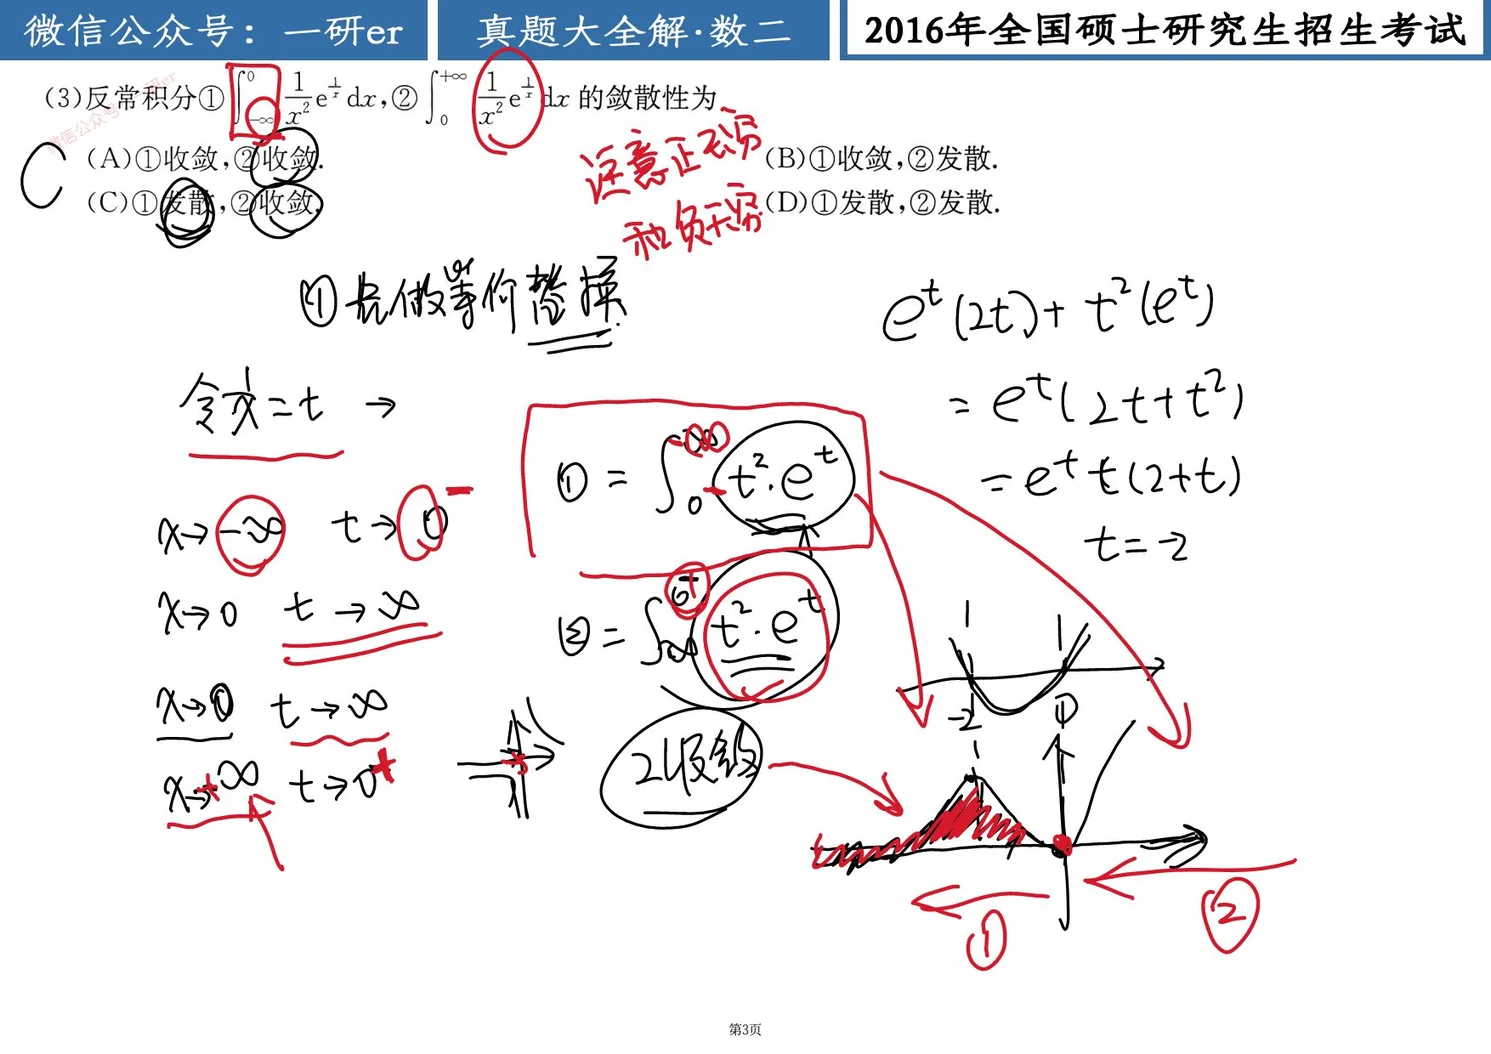 微信公众号：一研er
真题大全解·数二
2016年全国硕士研究生招生考试
(3)反常积分①∫_{-∞}^{0} 1/x² e^{1/x} dx,②∫_{0}^{+∞} 1/x² e^{1/x} dx 的敛散性为
(A)①收敛,②收敛.
(B)①收敛,②发散.
(C)①发散,②收敛.
(D)①发散,②发散.
C
注意正无穷
和负无穷
①先做等价替换.
令1/x=t →
x→-∞ t→0⁻
x→0 t→∞
x→0 t→∞
x→+∞ t→0⁺
①=∫_{0⁻}^{-∞} t²·e^t
②=∫_{∞}^{0⁺} t²·e^t
2收敛
e^t(2t)+t²(e^t)
=e^t(2t+t²)
=e^t t(2+t)
t=-2
-2 0
① ②
第3页